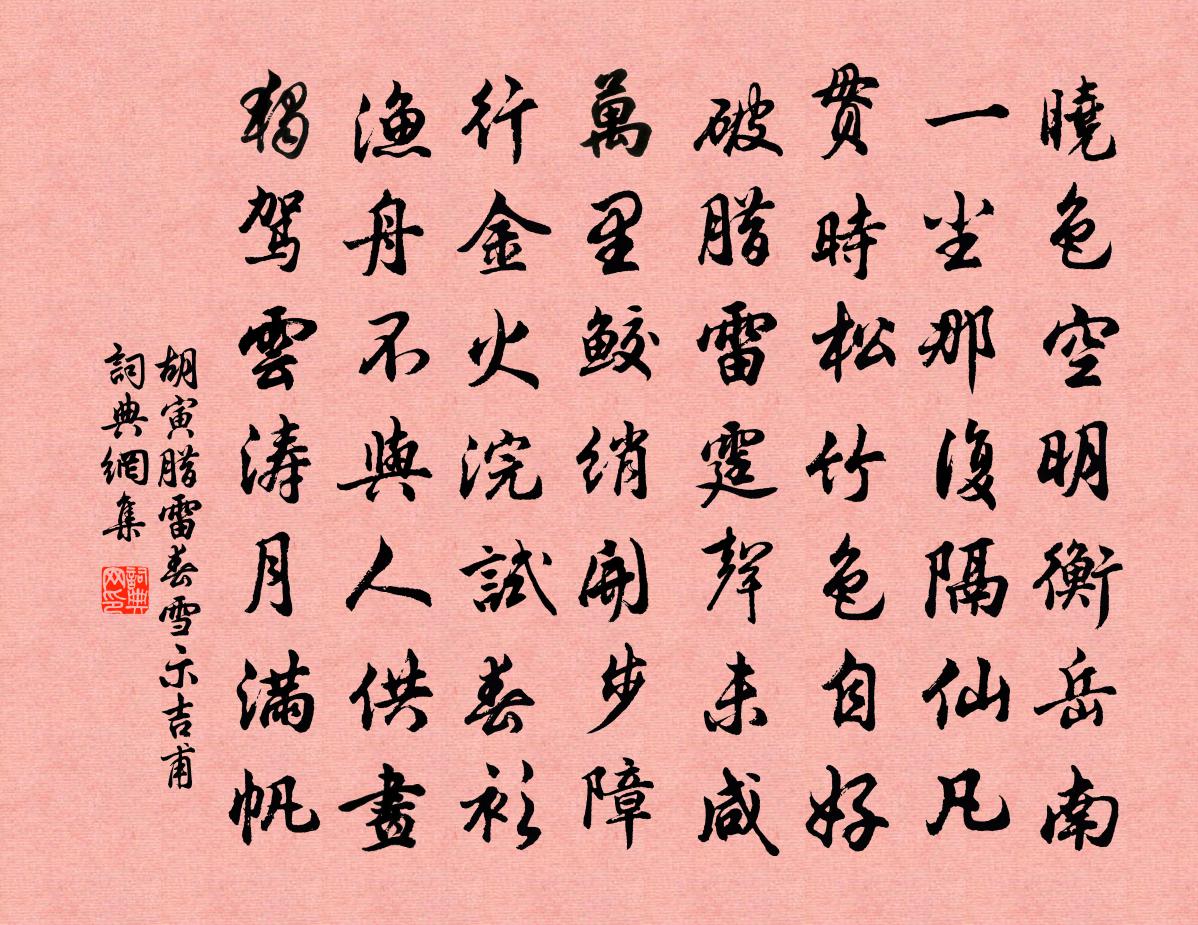 曉色空明衡岳南
一尘那復隔仙凡
貫時松竹色自好
破腊雷霆聲未咸
萬里鮫绡開步障
行金火浣試春衫
漁舟不與人供畫
獨駕雲涛月滿帆
胡寅腊雷春雪示吉甫
詞典網集
詞典网印